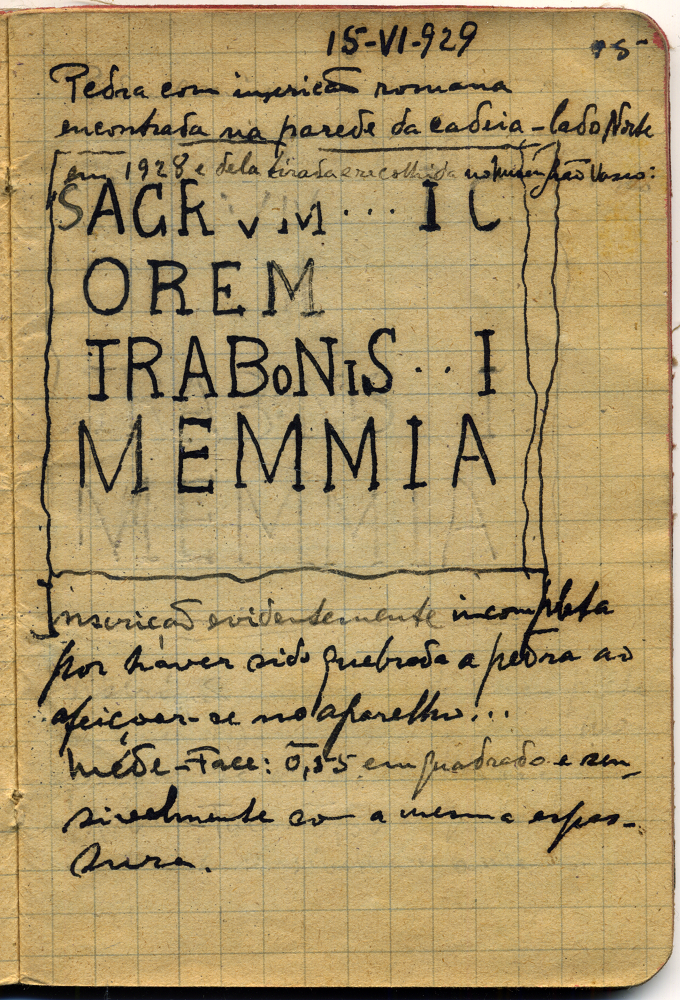 15-VI-929
Pedra com inscrição romana
encontrada na parede da cadeia - lado Norte
em 1928 e dela tirada e recolhida no Museu Grão Vasco:
SACRVM... I C
OREM
TRABONIS.. I
MEMMIA
Inscrição evidentemente incompleta
por háver sido quebrada a pedra ao
afeiçoar-se no aparelho...
Méde-Face: 0,55 em quadrado e sen-
sivelmente com a mesma espes-
sura.